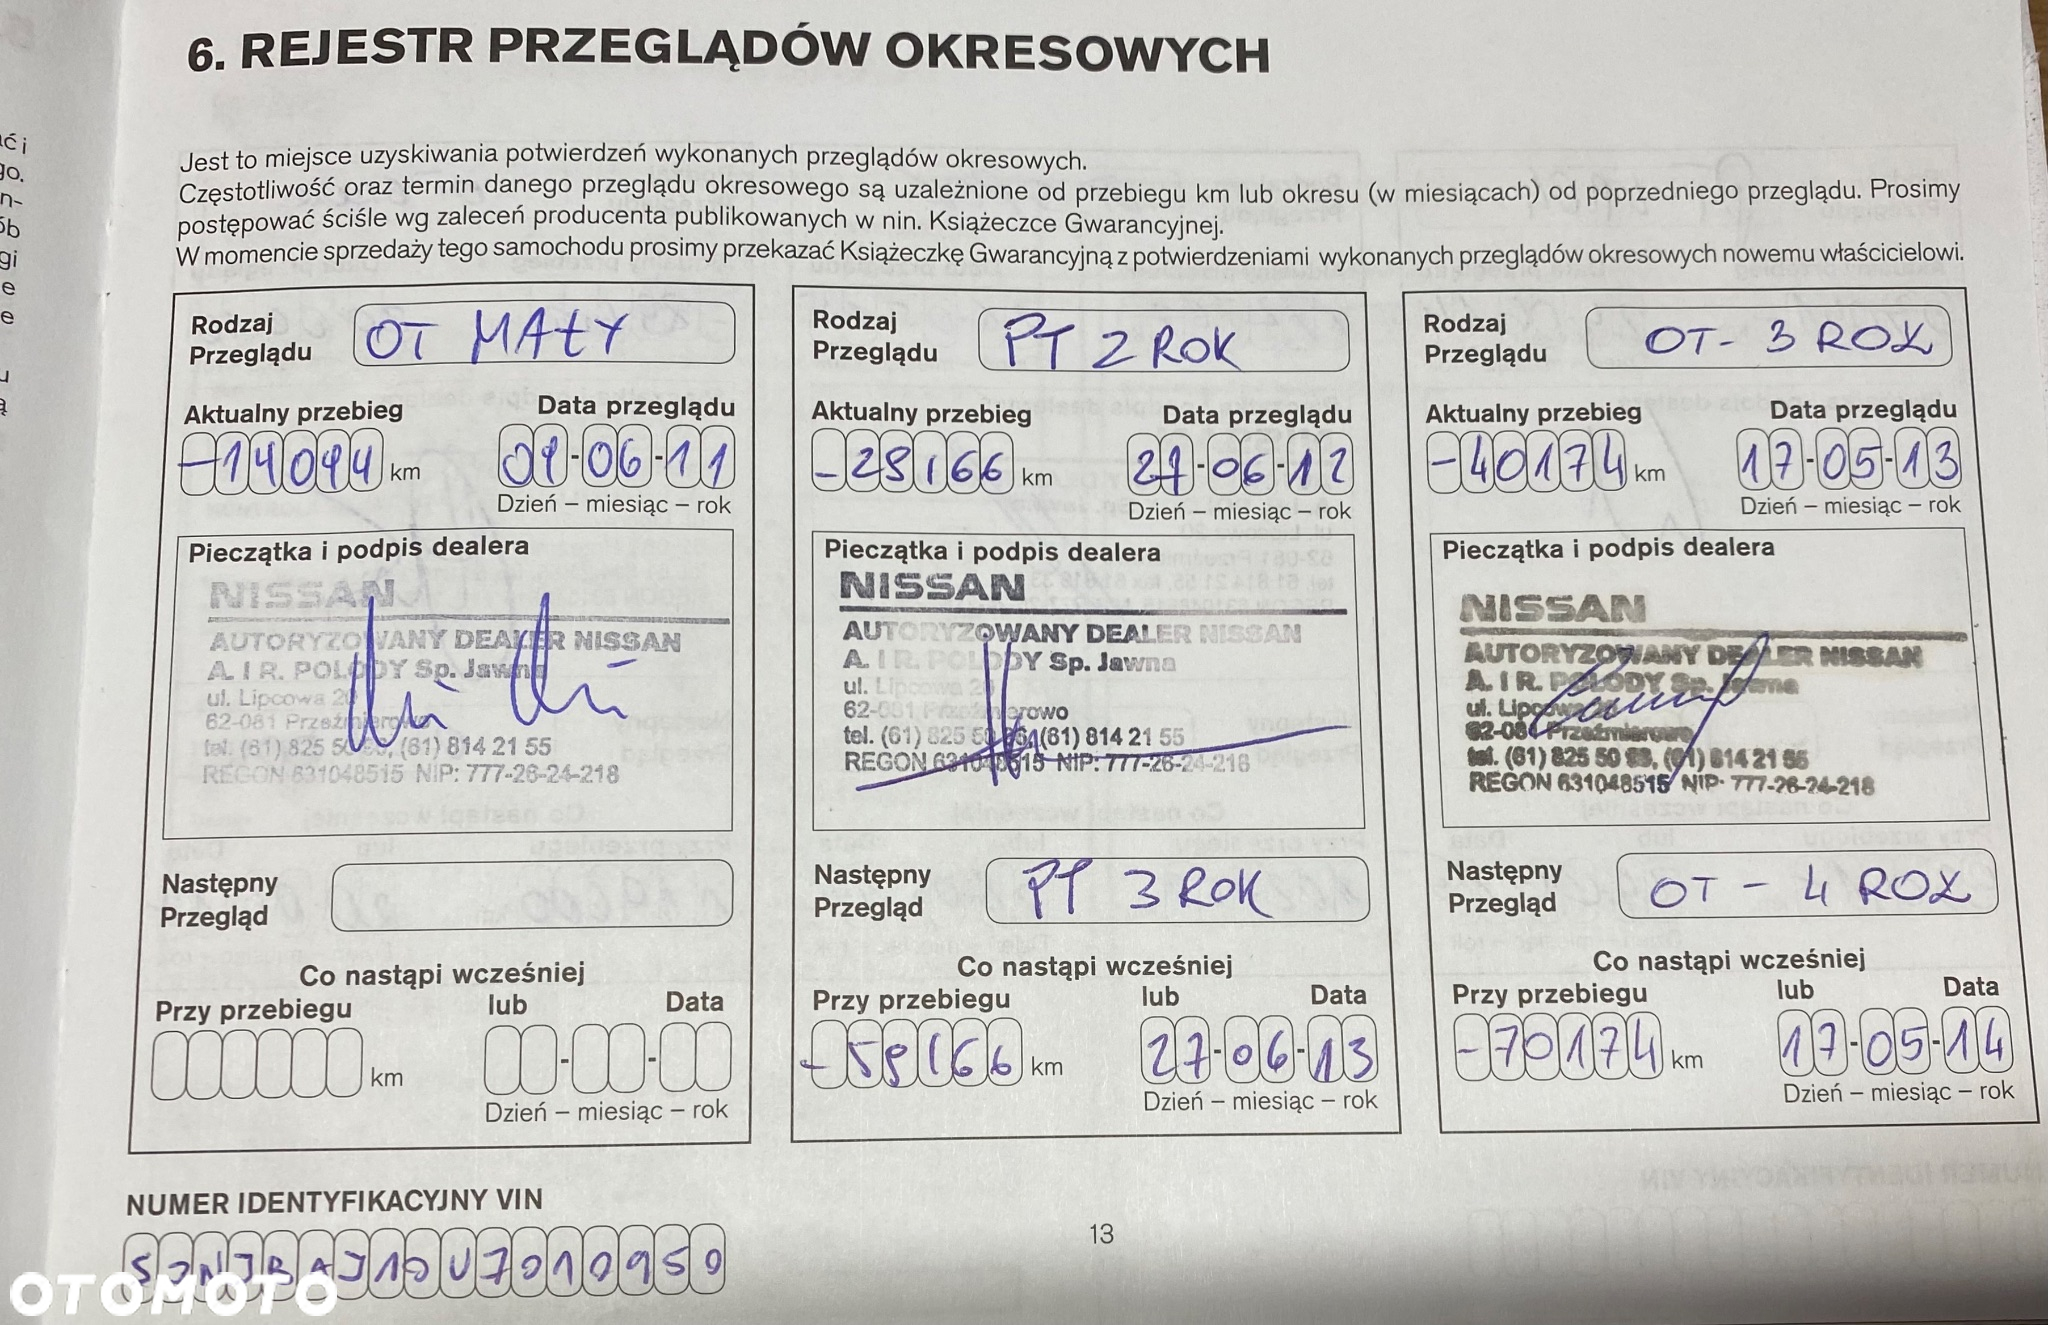 6. REJESTR PRZEGLĄDÓW OKRESOWYCH
Jest to miejsce uzyskiwania potwierdzeń wykonanych przeglądów okresowych.
Częstotliwość oraz termin danego przeglądu okresowego są uzależnione od przebiegu km lub okresu (w miesiącach) od poprzedniego przeglądu. Prosimy
postępować ściśle wg zaleceń producenta publikowanych w nin. Książeczce Gwarancyjnej.
W momencie sprzedaży tego samochodu prosimy przekazać Książeczkę Gwarancyjną z potwierdzeniami wykonanych przeglądów okresowych nowemu właścicielowi.
Rodzaj
Przeglądu OT MAŁY
Aktualny przebieg Data przeglądu
-14094 km 09-06-11
Dzień – miesiąc – rok
Pieczątka i podpis dealera
NISSAN
AUTORYZOWANY DEALER NISSAN
A. I R. POLODY Sp. Jawna
ul. Lipcowa 20
62-081 Przeźmierowo
tel. (61) 825 50, (61) 814 21 55
REGON 631048515 NIP: 777-26-24-218
Następny
Przegląd
Co nastąpi wcześniej
Przy przebiegu lub Data
km
Dzień – miesiąc – rok
Rodzaj
Przeglądu PT 2 ROK
Aktualny przebieg Data przeglądu
-29166 km 27-06-12
Dzień – miesiąc – rok
Pieczątka i podpis dealera
NISSAN
AUTORYZOWANY DEALER NISSAN
A. I R. POLODY Sp. Jawna
ul. Lipcowa 20
62-081 Przeźmierowo
tel. (61) 825 50, (61) 814 21 55
REGON 631048515 NIP: 777-26-24-218
Następny
Przegląd PT 3 ROK
Co nastąpi wcześniej
Przy przebiegu lub Data
-59166 km 27-06-13
Dzień – miesiąc – rok
Rodzaj
Przeglądu OT - 3 ROK
Aktualny przebieg Data przeglądu
-40174 km 17-05-13
Dzień – miesiąc – rok
Pieczątka i podpis dealera
NISSAN
AUTORYZOWANY DEALER NISSAN
A. I R. POLODY Sp. Jawna
ul. Lipcowa
62-081 Przeźmierowo
tel. (61) 825 50, (61) 814 21 55
REGON 631048515 NIP: 777-26-24-218
Następny
Przegląd OT - 4 ROK
Co nastąpi wcześniej
Przy przebiegu lub Data
-70174 km 17-05-14
Dzień – miesiąc – rok
NUMER IDENTYFIKACYJNY VIN
SJNJBAJ10U7010950
13
OTOMOTO